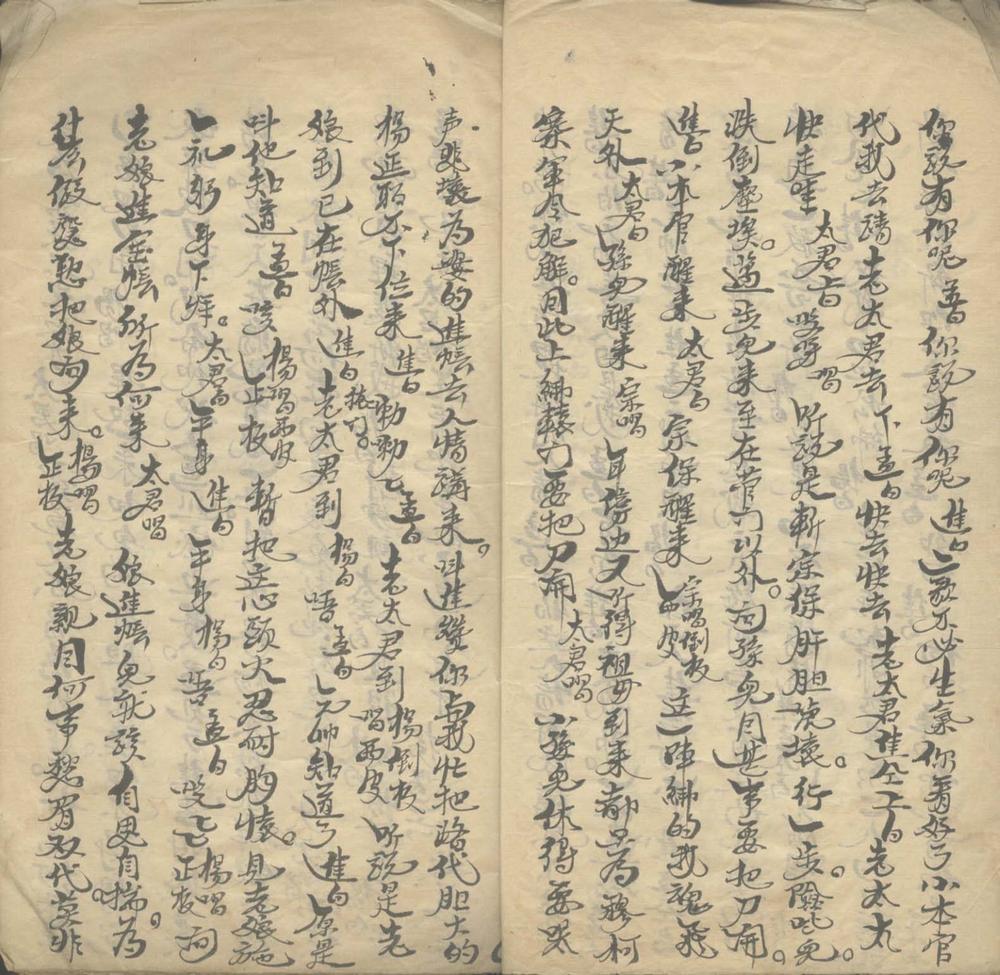 你說有你呢 孟白 你說有你呢 焦白 二哥不必生氣你看好了小本官
代我去請老太君去 下 孟白 快去快去 老太君焦仝上白 老太太
快走哇 太君白 唱 听說是斬宗保肝胆唬壞。行一步險些兒。
跌倒塵埃。邁步兒來至在營門以外。问孫兒因甚事要把刀開。
焦白 小本官醒來 太君白 宗保醒來 宗唱倒板 西皮 这一陣綁的我魂飛
天外 太君白 孫兒醒來 宗唱 耳傍边又听得祖母到來 都只為穆柯
寨軍令犯觧。因此上綁轅门要把刀開 太君唱 小孫兒休得要哭
声悲壞為婆的進帳去人情講來。叫進纉你與我忙把路代胆大的
楊延昭不下位來 焦白 孟白 老太君到 楊倒板 唱西皮 听說是老
娘到已在帳外 焦白 老太君到 楊白 唔 孟白 元帅知道了 焦白 原是
叫他知道 孟白 咳 楊唱西皮 正板 暫把这心頭火忍耐胸懷。見老娘施
一礼躬身下拜。太君白 平身 焦白 平身 楊白 唔 孟白 楊唱 正板 问
老娘進宝帳所為何來 太君唱 娘進帳兒就該自思自揣。為
什広假裝憨把娘问來。楊唱 正板 老娘親因何事愁眉双代。莫非